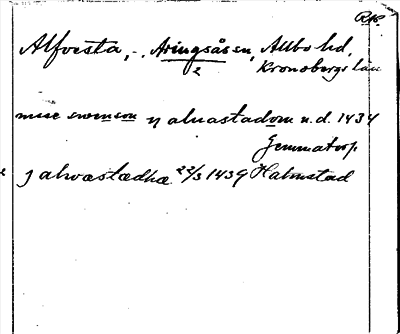 RAP.
Alfvesta, Aringsåsen, Allbo hd,
2 Kronobergs län
nisse swenson y aluastadom u.d. 1434
Gemmatorp.
j alwastædhæ 22/3 1439 Halmstad